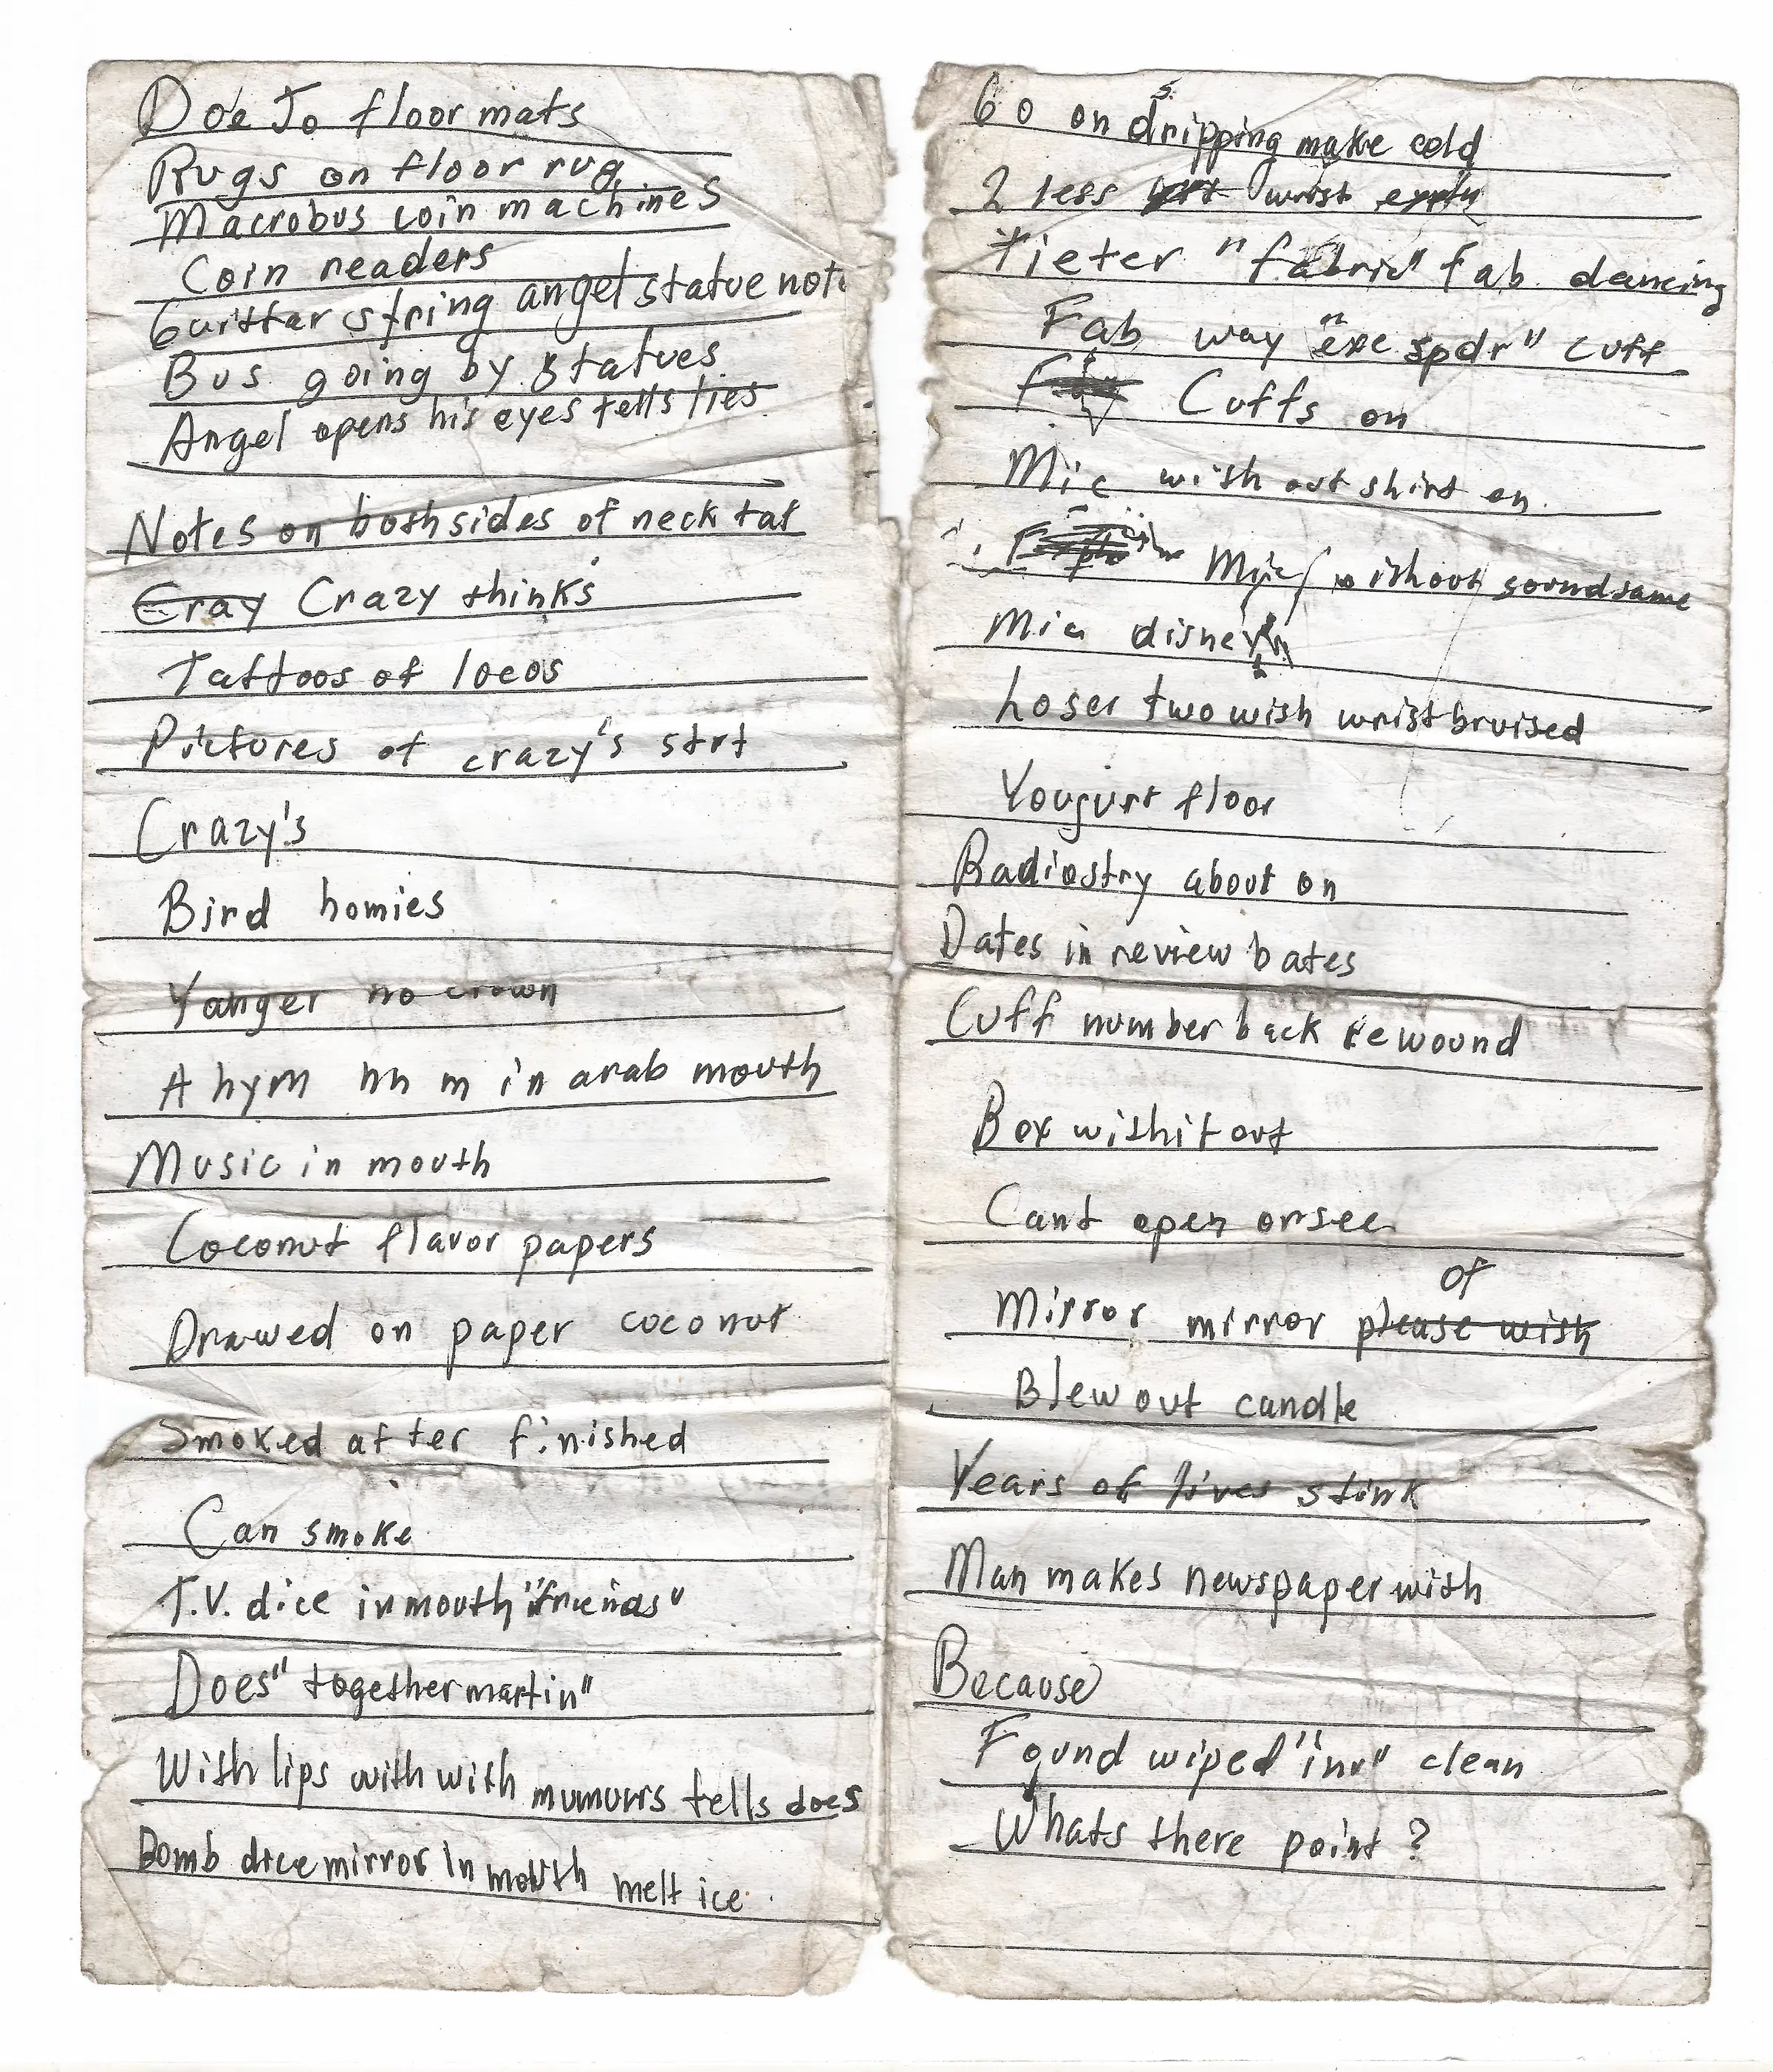 Doe To floor mats
Rugs on floor rug
Macrobus coin machines
Coin readers
Guittar string angel statue note
Bus going by statues
Angel opens his eyes tells lies
Notes on both sides of neck tat
Cray Crazy thinks
Tattoos of locos
Pictures of crazy's strt
Crazy's
Bird homies
Yanger no crown
A hym hh m in arab mouth
Music in mouth
Coconut flavor papers
Drawed on paper coconut
Smoked after finished
Can smoke
T.V. dice in mouth "friends"
Does "together martin"
With lips with with mumurrs tells does
Bomb dice mirror in mouth melt ice.
Go on dripping make cold
2 less wrist
Tieter "fabric" fab dancing
Fab way "exe spdr" cuff
Cuffs on
Mic with out shirt on.
Mic without sound same
Mic disney
Loser two wish wrist bruised
Yougurt floor
Radiostry about on
Dates in review bates
Cuff number back rewound
Box withit out
Cant open or see
of
Mirror mirror please wish
Blew out candle
Years of lives stink
Man makes newspaper with
Because
Found wiped "inv" clean
Whats there point?